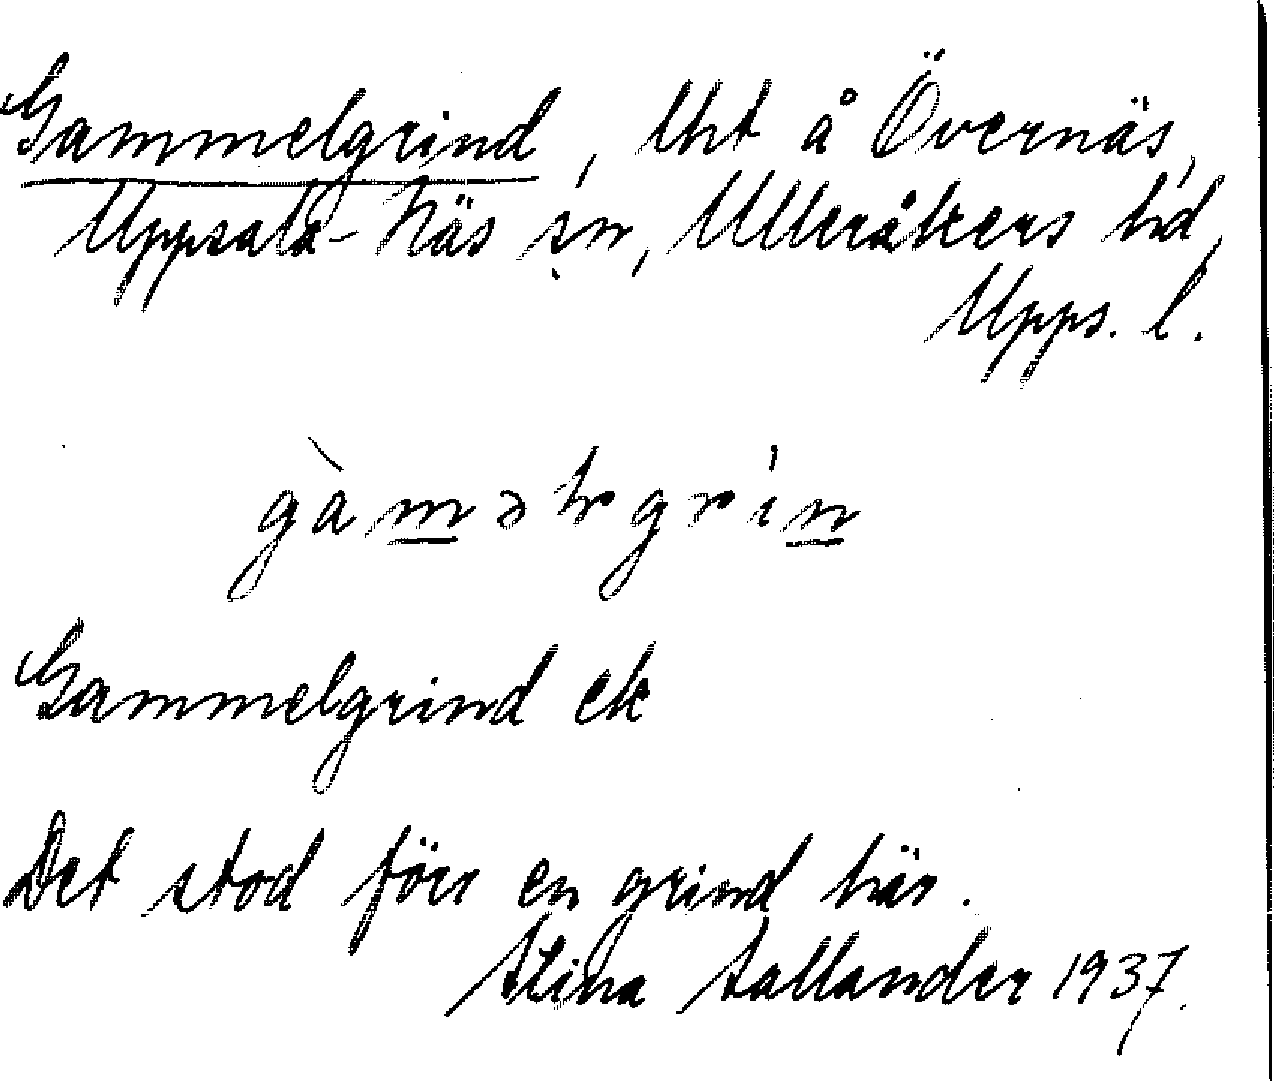 Gammelgrind, Uht å Övernäs,
Uppsala-Näs sn, Ulleråkers hd,
Upps. l.
gàməlgrin
Gammelgrind ek
Det stod förr en grind här.
Stina Sallander 1937.